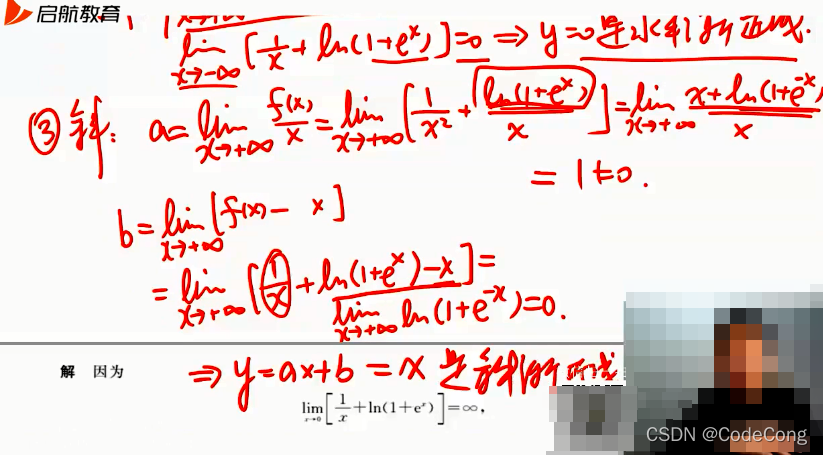 启航教育
lim x→-∞ [1/x + ln(1+e^x)] = 0 ⇒ y=0 是水平渐近线.
③ 斜: a = lim x→+∞ f(x)/x = lim x→+∞ [1/x² + ln(1+e^x)/x] = lim x→+∞ (x+ln(1+e^-x))/x
= 1 ≠ 0.
b = lim x→+∞ [f(x) - x]
= lim x→+∞ [1/x + ln(1+e^x) - x] =
lim x→+∞ ln(1+e^-x) = 0.
解 因为 ⇒ y = ax+b = x 是斜渐近线
lim x→0 [1/x + ln(1+e^x)] = ∞,
CSDN @CodeCong